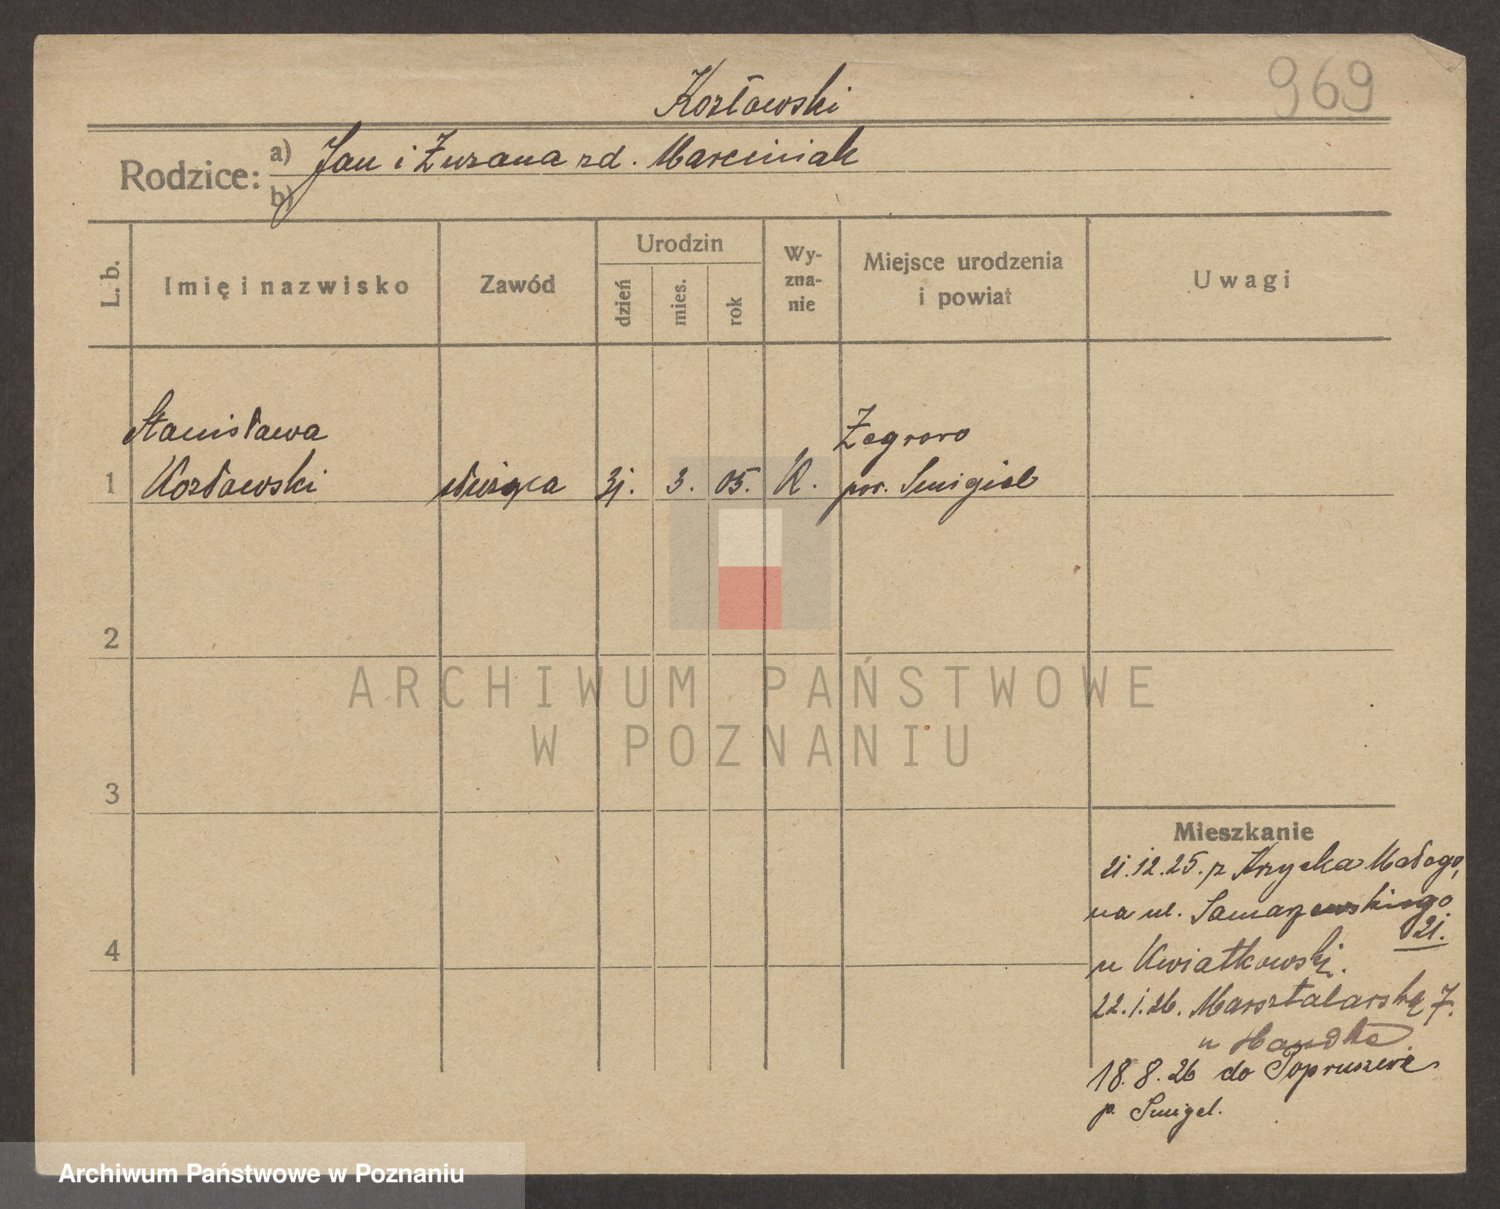 969
Kozłowski
Rodzice: a) Jan i Zuzana zd. Marciniak
b)
L. b. Imię i nazwisko Zawód Urodzin dzień mies. rok Wy-zna-nie Miejsce urodzenia i powiat Uwagi
Stanisława Zegrowo
1 Kozłowski służąca 31. 3. 05. K. pow. Smigiel
2
ARCHIWUM PAŃSTWOWE
W POZNANIU
3
Mieszkanie
21.12.25. z Krzycka Małego,
na ul. Samarzewskiego
21.
4
u Kwiatkowski.
22.1.26. Marsztalarską 7.
u
18.8.26 do
p. Smigel.
Archiwum Państwowe w Poznaniu